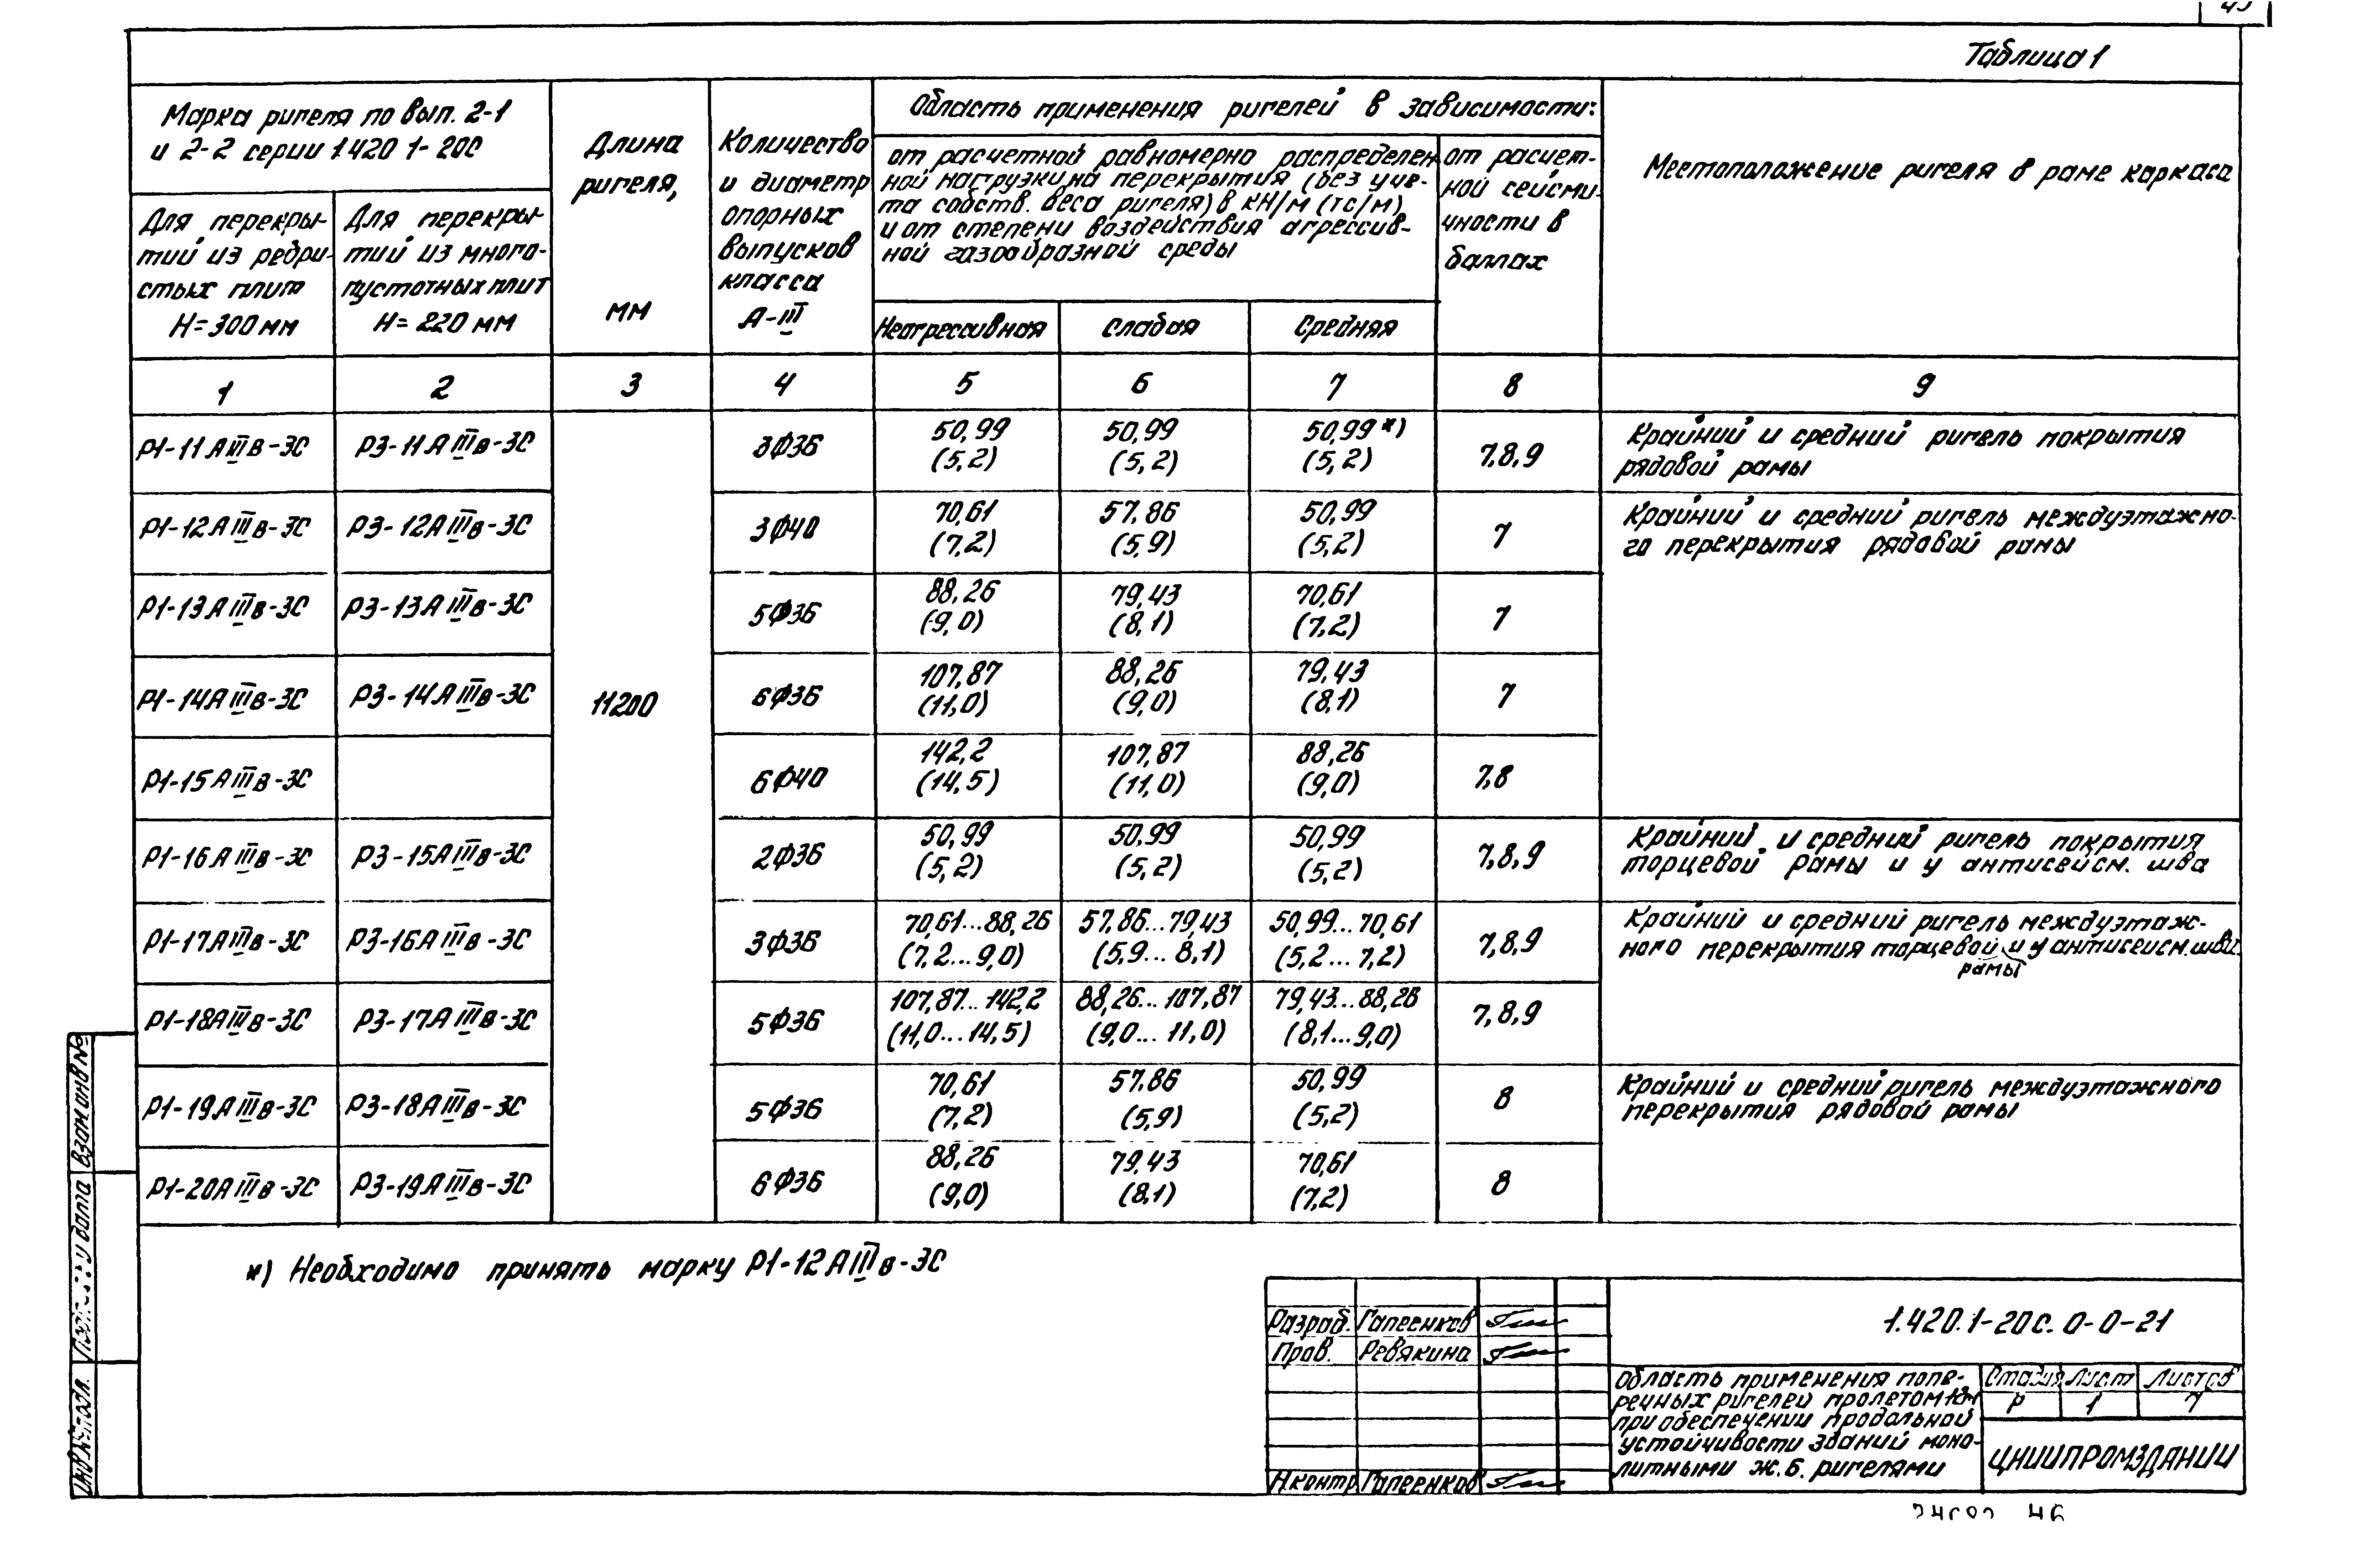 Таблица 1
Марка ригеля по вып. 2-1
и 2-2 серии 1.420 1-20С
Для перекры-
тий из ребри-
стых плит
Н=300 мм
Для перекры-
тий из много-
пустотных плит
Н= 220 мм
Длина
ригеля,
мм
Количество
и диаметр
опорных
выпусков
класса
А-III
Область применения ригелей в зависимости:
от расчетной равномерно распределен-
ной нагрузки на перекрытия (без уче-
та собств. веса ригеля) в кН/м (тс/м)
и от степени воздействия агрессив-
ной газообразной среды
Неагрессивная
Слабая
Средняя
от расчет-
ной сейсми-
чности в
баллах
Местоположение ригеля в раме каркаса
1 2 3 4 5 6 7 8 9
Р1-11АIIIв-3С Р3-11АIIIв-3С 3Ф36 50,99 (5,2) 50,99 (5,2) 50,99 *) (5,2) 7,8,9
Крайний и средний ригель покрытия
рядовой рамы
Р1-12АIIIв-3С Р3-12АIIIв-3С 3Ф40 70,61 (7,2) 57,86 (5,9) 50,99 (5,2) 7
Крайний и средний ригель междуэтажно-
го перекрытия рядовой рамы
Р1-13АIIIв-3С Р3-13АIIIв-3С 5Ф36 88,26 (9,0) 79,43 (8,1) 70,61 (7,2) 7
Р1-14АIIIв-3С Р3-14АIIIв-3С 11200 6Ф36 107,87 (11,0) 88,26 (9,0) 79,43 (8,1) 7
Р1-15АIIIв-3С 6Ф40 142,2 (14,5) 107,87 (11,0) 88,26 (9,0) 7,8
Р1-16АIIIв-3С Р3-15АIIIв-3С 2Ф36 50,99 (5,2) 50,99 (5,2) 50,99 (5,2) 7,8,9
Крайний и средний ригель покрытия
торцевой рамы и у антисейсм. шва
Р1-17АIIIв-3С Р3-16АIIIв-3С 3Ф36 70,61...88,26 (7,2...9,0) 57,86...79,43 (5,9...8,1) 50,99...70,61 (5,2...7,2) 7,8,9
Крайний и средний ригель междуэтаж-
ного перекрытия торцевой рамы и у антисейсм. шва
Р1-18АIIIв-3С Р3-17АIIIв-3С 5Ф36 107,87...142,2 (11,0...14,5) 88,26...107,87 (9,0...11,0) 79,43...88,26 (8,1...9,0) 7,8,9
Р1-19АIIIв-3С Р3-18АIIIв-3С 5Ф36 70,61 (7,2) 57,86 (5,9) 50,99 (5,2) 8
Крайний и средний ригель междуэтажного
перекрытия рядовой рамы
Р1-20АIIIв-3С Р3-19АIIIв-3С 6Ф36 88,26 (9,0) 79,43 (8,1) 70,61 (7,2) 8
*) Необходимо принять марку Р1-12АIIIв-3С
Разраб. Гапеенков
Пров. Ревякина
Н.контр Гапеенков
1.420.1-20с. 0-0-21
Область применения попе-
речных ригелей пролетом 12м
при обеспечении продольной
устойчивости зданий моно-
литными ж.б. ригелями
Стадия Лист Листов
Р 1 7
ЦНИИПРОМЗДАНИЙ
Взам.инв№
и дата
Инв.№подл.
46